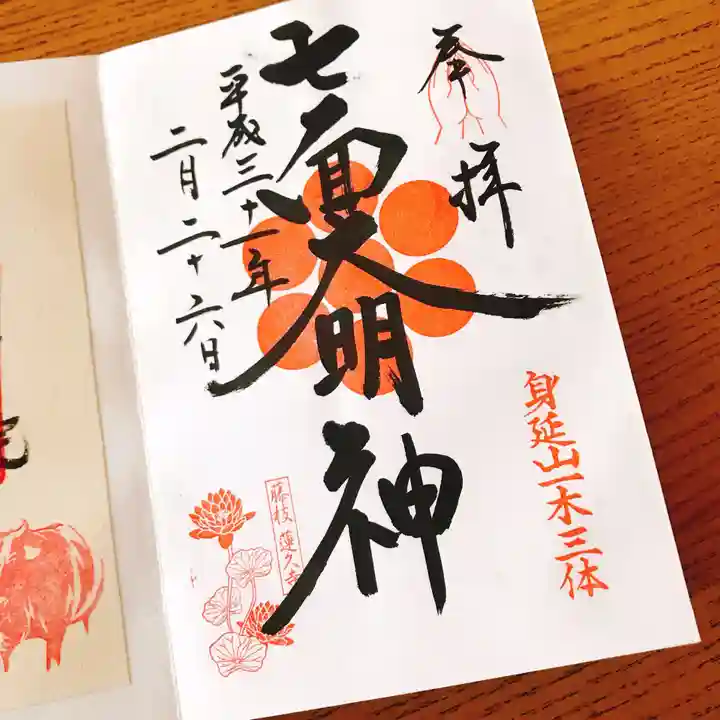 奉拝
身延山一木三体
七面大明神
平成三十一年
二月二十六日
藤枝 蓮久寺